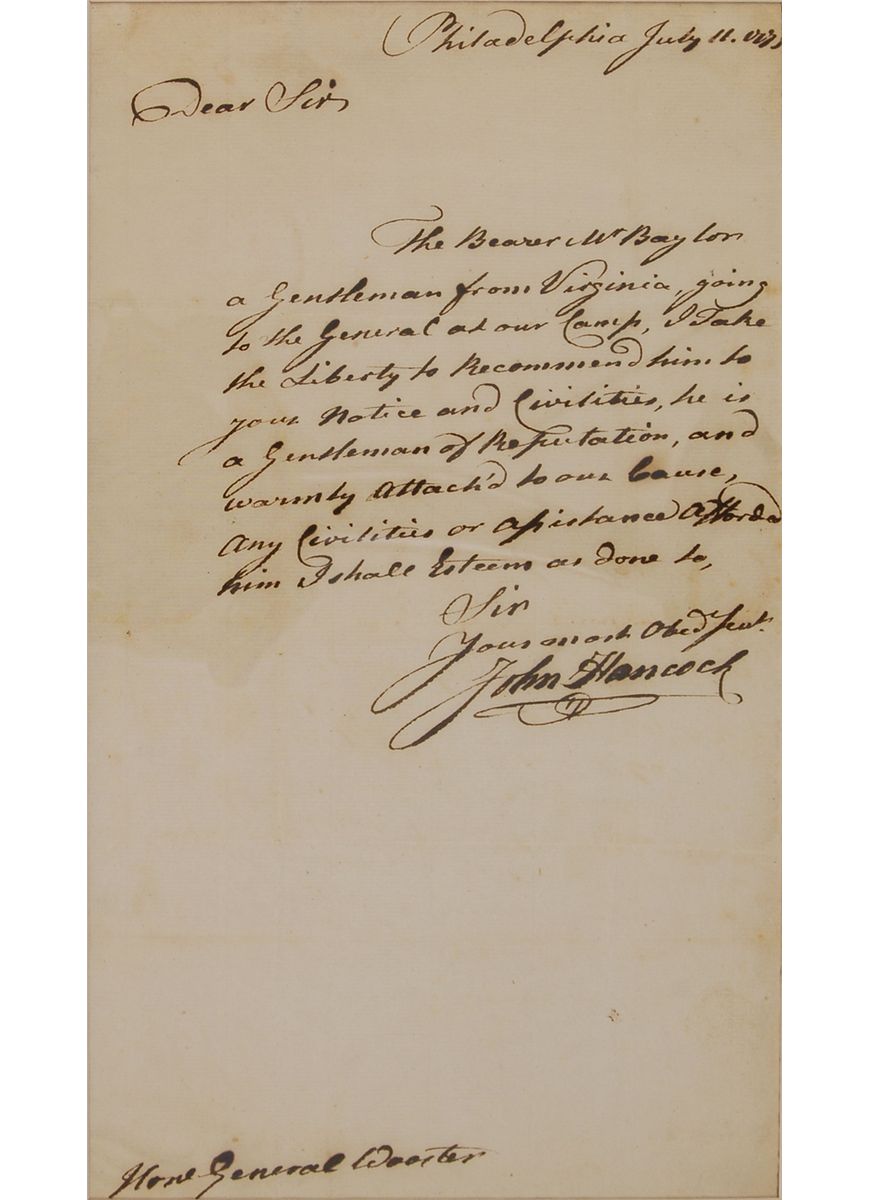 Philadelphia July 11. 1775
Dear Sir
The Bearer Mr Baylor
a Gentleman from Virginia, going
to the General at our Camp, I Take
the Liberty to Recommend him to
your Notice and Civilities, he is
a Gentleman of Reputation, and
warmly Attach'd to our Cause,
Any Civilities or Assistance Afforded
him I shall Esteem as done to,
Sir
Your most Obedt Servt
John Hancock
Honl General Wooster